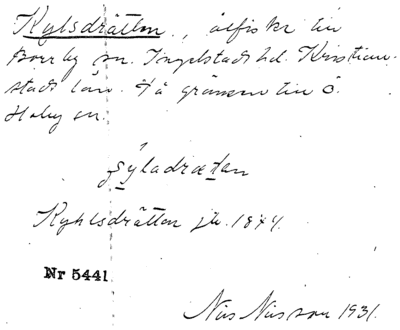 Kylsdrätten, ålfiske till
Borrby sn. Ingelstads hd. Kristian-
stads län. På gränsen till Ö.
Hoby sn.
Kyhlsdrätten jb. 1874.
Nr 5441
Nils Nilsson 1931.